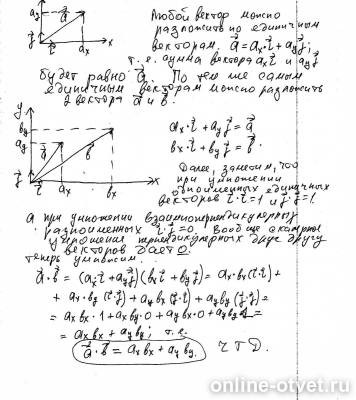 Любой вектор можно
разложить по единичным
векторам. a⃗ = aₓ·i⃗ + a_y j⃗;
т. е. сумма вектора aₓ i⃗ и a_y j⃗
будет равно a⃗. По тем же самым
единичным векторам можно разложить
2 вектора a⃗ и b⃗.
a_y
a⃗
j⃗
i⃗
aₓ
x
y
b_y
a_y
a⃗
b⃗
j⃗
i⃗
aₓ
bₓ
x
aₓ·i⃗ + a_y j⃗ = a⃗
bₓ·i⃗ + b_y j⃗ = b⃗.
Далее, заметим, что
при умножении
одноименных единичных
векторов i⃗·i⃗=1 и j⃗·j⃗=1.
а при умножении взаимноперпендикулярных
разноименных i⃗·j⃗=0. Вообще скалярное
умножение перпендикулярных друг другу
векторов дает 0.
теперь умножим.
a⃗·b⃗ = (aₓ i⃗ + a_y j⃗)(bₓ i⃗ + b_y j⃗) = aₓ bₓ (i⃗·i⃗) +
+ aₓ b_y (i⃗·j⃗) + a_y bₓ (j⃗·i⃗) + a_y b_y (j⃗·j⃗) =
= aₓ bₓ·1 + aₓ b_y·0 + a_y bₓ·0 + a_y b_y·1 =
= aₓ bₓ + a_y b_y; т. е.
a⃗·b⃗ = aₓ bₓ + a_y b_y. Ч Т Д.
online-otvet.ru